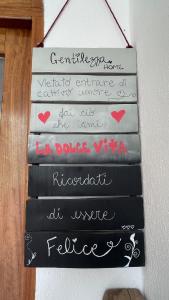 Gentilezza
HOME
Vietato entrare di
cattivo umore
fai ciò
che ami
LA DOLCE VITA
Ricordati
di essere
Felice